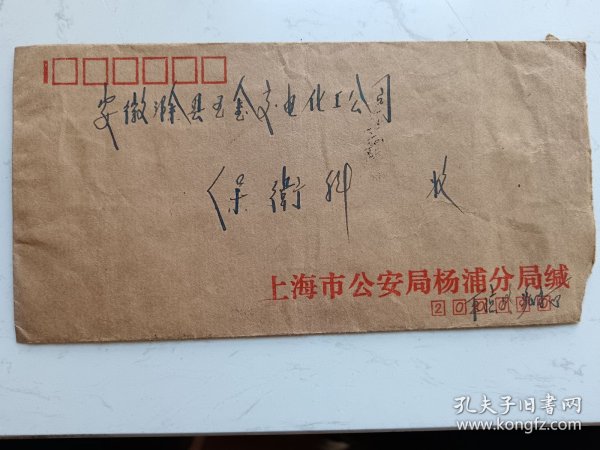 安徽滁县五金交电化工公司
保衛科 收
上海市公安局杨浦分局缄
孔夫子旧书网
www.kongfz.com